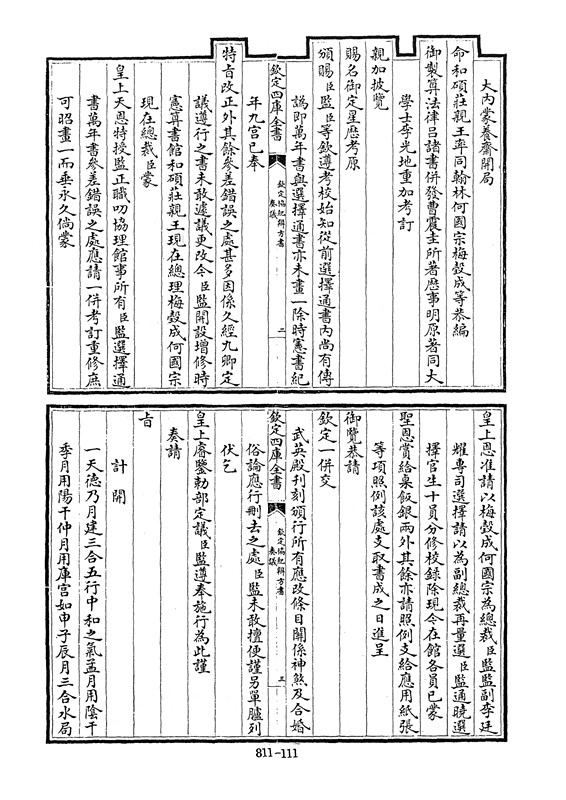 大内蒙養齋開局
命和碩莊親王率同翰林何國宗梅瑴成等恭編
御製算法律吕諸書併發曹震圭所著歴事明原著同大
學士李光地重加考訂
親加披覽
賜名御定星歴考原
頒賜臣監臣等欽遵考校始知從前選擇通書内尚有傳
譌即萬年書與選擇通書亦未畫一除時憲書紀
欽定四庫全書
欽定協紀辨方書
奏議
二
年九宫已奉
特㫖改正外其餘參差錯誤之處甚多因係久經九卿定
議遵行之書未敢遽議更改今臣監開設增修時
憲算書館和碩莊親王現在總理梅瑴成何國宗
現在總裁臣蒙
皇上天恩特授監正職叨協理館事所有臣監選擇通
書萬年書參差錯誤之處應請一併考訂重修庶
可昭畫一而垂永久倘蒙
皇上恩准請以梅瑴成何國宗為總裁臣監監副李廷
耀專司選擇請以為副總裁再量選臣監通曉選
擇官生十員分修校録除現今在館各員已蒙
聖恩賞給桌飯銀兩外其餘亦請照例支給應用紙張
等項照例該處支取書成之日進呈
御覽恭請
欽定一併交
武英殿刊刻頒行所有應改條目關係神煞及合婚
欽定四庫全書
欽定協紀辨方書
奏議
三
俗論應行刪去之處臣監未敢擅便謹另單臚列
伏乞
皇上睿鑒勅部定議臣監遵奉施行為此謹
奏請
㫖
計開
一天德乃月建三合五行中和之氣孟月用陰干
季月用陽干仲月用庫宫如申子辰月三合水局
811-111